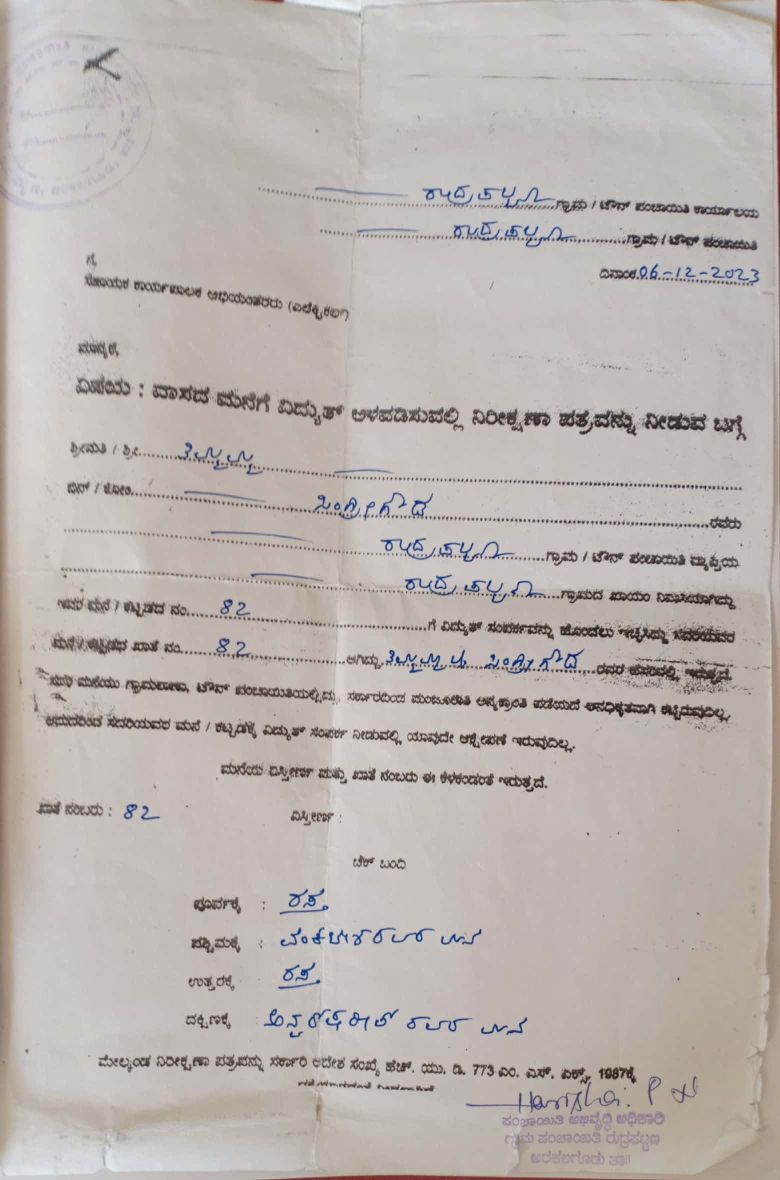 ರುದ್ರಪಟ್ಟಣ ಗ್ರಾಮ / ಟೌನ್ ಪಂಚಾಯಿತಿ ಕಾರ್ಯಾಲಯ
ರುದ್ರಪಟ್ಟಣ ಗ್ರಾಮ / ಟೌನ್ ಪಂಚಾಯಿತಿ
ದಿನಾಂಕ 06-12-2023
ಗೆ,
ಸಹಾಯಕ ಕಾರ್ಯಪಾಲಕ ಅಭಿಯಂತರರು (ಎಲೆಕ್ಟ್ರಿಕಲ್)
ಮಾನ್ಯರೆ,
ವಿಷಯ : ವಾಸದ ಮನೆಗೆ ವಿದ್ಯುತ್ ಅಳವಡಿಸುವಲ್ಲಿ ನಿರೀಕ್ಷಣಾ ಪತ್ರವನ್ನು ನೀಡುವ ಬಗ್ಗೆ
ಶ್ರೀಮತಿ / ಶ್ರೀ
ಬಿನ್ / ಕೋಂ ರವರು
ರುದ್ರಪಟ್ಟಣ ಗ್ರಾಮ / ಟೌನ್ ಪಂಚಾಯಿತಿ ವ್ಯಾಪ್ತಿಯ
ರುದ್ರಪಟ್ಟಣ ಗ್ರಾಮದ ಖಾಯಂ ನಿವಾಸಿಯಾಗಿದ್ದು
ಇವರ ಮನೆ / ಕಟ್ಟಡದ ನಂ. 82 ಗೆ ವಿದ್ಯುತ್ ಸಂಪರ್ಕವನ್ನು ಹೊಂದಲು ಇಚ್ಛಿಸಿದ್ದು ಸದರಿಯವರ
ಮನೆ / ಕಟ್ಟಡದ ಖಾತೆ ನಂ. 82 ಆಗಿದ್ದು, ರವರ ಹೆಸರಿನಲ್ಲಿ ಇರುತ್ತದೆ.
ಸದರಿ ಮನೆಯು ಗ್ರಾಮಠಾಣಾ, ಟೌನ್ ಪಂಚಾಯಿತಿಯಲ್ಲಿದ್ದು, ಸರ್ಕಾರದಿಂದ ಮಂಜೂರಾತಿ ಅನ್ಯಕ್ರಾಂತಿ ಪಡೆಯದೆ ಅನಧಿಕೃತವಾಗಿ ಕಟ್ಟಿರುವುದಿಲ್ಲ.
ಆದುದರಿಂದ ಸದರಿಯವರ ಮನೆ / ಕಟ್ಟಡಕ್ಕೆ ವಿದ್ಯುತ್ ಸಂಪರ್ಕ ನೀಡುವಲ್ಲಿ ಯಾವುದೇ ಆಕ್ಷೇಪಣೆ ಇರುವುದಿಲ್ಲ.
ಮನೆಯ ವಿಸ್ತೀರ್ಣ ಮತ್ತು ಖಾತೆ ನಂಬರು ಈ ಕೆಳಕಂಡಂತೆ ಇರುತ್ತದೆ.
ಖಾತೆ ನಂಬರು : 82 ವಿಸ್ತೀರ್ಣ :
ಚೆಕ್ ಬಂದಿ
ಪೂರ್ವಕ್ಕೆ : ರಸ್ತೆ
ಪಶ್ಚಿಮಕ್ಕೆ : ಮನೆ
ಉತ್ತರಕ್ಕೆ : ರಸ್ತೆ
ದಕ್ಷಿಣಕ್ಕೆ : ರವರ ಮನೆ
ಮೇಲ್ಕಂಡ ನಿರೀಕ್ಷಣಾ ಪತ್ರವನ್ನು ಸರ್ಕಾರಿ ಆದೇಶ ಸಂಖ್ಯೆ ಹೆಚ್. ಯು. ಡಿ. 773 ಎಂ. ಎಸ್. ಎಕ್ಸ್. 1987ಕ್ಕೆ
ಪಂಚಾಯಿತಿ ಅಭಿವೃದ್ಧಿ ಅಧಿಕಾರಿ
ಗ್ರಾಮ ಪಂಚಾಯಿತಿ ರುದ್ರಪಟ್ಟಣ
ಅರಕಲಗೂಡು ತಾ||